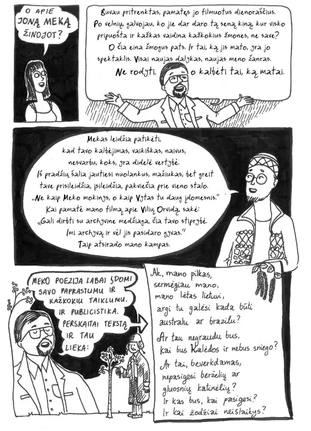 O APIE
JONĄ MEKĄ
ŽINOJOT?
Buvau pritrenktas, pamatęs jo filmuotus dienoraščius.
Po velnių, galvojau, ko jie dar daro tą seną kiną, kur visko
pripuošta ir kažkas vaidina kažkokius žmones, ne save?
O čia eina žmogus pats. Ir tai, ką jis mato, yra jo
spektaklis. Visai naujas dalykas, naujas meno žanras.
Ne rodyti, o kalbėti tai, ką matai.
Mekas leidžia patikėti,
kad tavo kalbėjimas, vaikiškas, naivus,
nesvarbu, koks, yra didelė vertybė.
Iš pradžių šalia jautiesi nuolankus, mažiukas, bet greit
tave prisileidžia, įsileidžia, pakviečia prie vieno stalo.
„Ne kaip Meko mokinys, o kaip Vytas tu daug įdomesnis."
Kai pamatė mano filmą apie Vilių Orvidą, sakė:
„Gali dirbti su archyvine medžiaga, čia tavo stiprybė.
Imi archyvą ir vėl jis pasidaro gyvas."
Taip atsirado mano kampas.
MEKO POEZIJA LABAI ĮDOMI
SAVO PAPRASTUMU IR
KAŽKOKIU TAIKLUMU,
IR PUBLICISTIKA.
PERSKAITAI TEKSTĄ
IR TAU
LIEKA:
Ak, mano pilkas,
sermėgiau mano,
mano lėtas lietuvi,
argi tu galėsi kada būti
australu ar brazilu?
Ar tau negraudu bus,
kai bus Kalėdos ir nebus sniego?
Ar tai, beverkdamas,
nepasigesi berželių ar
gluosnių katinėlių?
Ir kas bus, kai pasigesi?
Ir kai žodžiai neištaikys?